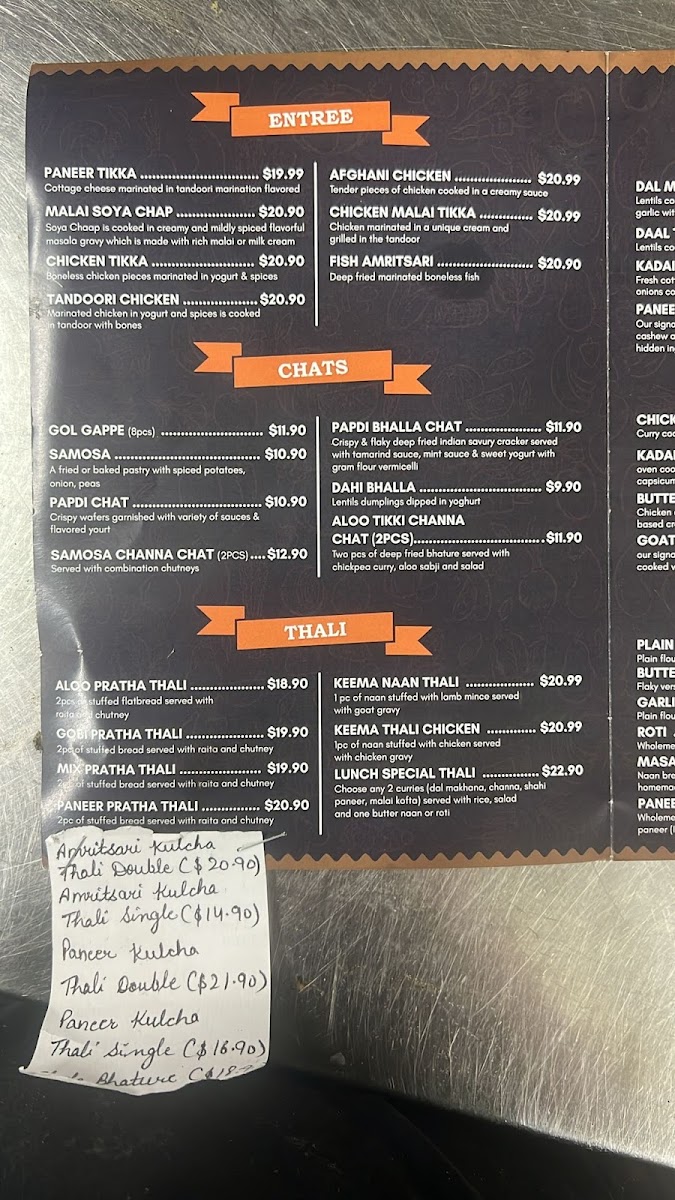 ENTREE
PANEER TIKKA ............................ $19.99
Cottage cheese marinated in tandoori marination flavored
MALAI SOYA CHAP ................... $20.90
Soya Chaap is cooked in creamy and mildly spiced flavorful
masala gravy which is made with rich malai or milk cream
CHICKEN TIKKA ......................... $20.90
Boneless chicken pieces marinated in yogurt & spices
TANDOORI CHICKEN .................. $20.90
Marinated chicken in yogurt and spices is cooked
in tandoor with bones
AFGHANI CHICKEN .................. $20.99
Tender pieces of chicken cooked in a creamy sauce
CHICKEN MALAI TIKKA ............. $20.99
Chicken marinated in a unique cream and
grilled in the tandoor
FISH AMRITSARI ........................ $20.90
Deep fried marinated boneless fish
CHATS
GOL GAPPE (8pcs) ........................ $11.90
SAMOSA ................................... $10.90
A fried or baked pastry with spiced potatoes,
onion, peas
PAPDI CHAT ............................... $10.90
Crispy wafers garnished with variety of sauces &
flavored yourt
SAMOSA CHANNA CHAT (2PCS) .... $12.90
Served with combination chutneys
PAPDI BHALLA CHAT .................. $11.90
Crispy & flaky deep fried indian savury cracker served
with tamarind sauce, mint sauce & sweet yogurt with
gram flour vermicelli
DAHI BHALLA ............................. $9.90
Lentils dumplings dipped in yoghurt
ALOO TIKKI CHANNA
CHAT (2PCS)............................... $11.90
Two pcs of deep fried bhature served with
chickpea curry, aloo sabji and salad
THALI
ALOO PRATHA THALI .................. $18.90
2pcs of stuffed flatbread served with
raita and chutney
GOBI PRATHA THALI ................... $19.90
2pc of stuffed bread served with raita and chutney
MIX PRATHA THALI ..................... $19.90
2pc of stuffed bread served with raita and chutney
PANEER PRATHA THALI .............. $20.90
2pc of stuffed bread served with raita and chutney
KEEMA NAAN THALI ................. $20.99
1 pc of naan stuffed with lamb mince served
with goat gravy
KEEMA THALI CHICKEN ............ $20.99
1pc of naan stuffed with chicken served
with chicken gravy
LUNCH SPECIAL THALI .............. $22.90
Choose any 2 curries (dal makhana, channa, shahi
paneer, malai kofta) served with rice, salad
and one butter naan or roti
DAL M
Lentils co
garlic wit
DAAL
Lentils co
KADAI
Fresh cot
onions co
PANEE
Our signa
cashew a
hidden in
CHICK
Curry coo
KADAI
oven coo
capsicum
BUTTE
Chicken
based cr
GOAT
our signa
cooked w
PLAIN
Plain flou
BUTTE
Flaky vers
GARLI
Plain flou
ROTI
Wholeme
MASA
Naan bre
homema
PANEE
Wholeme
paneer (I
Amritsari Kulcha
Thali Double ($20.90)
Amritsari Kulcha
Thali Single ($14.90)
Paneer Kulcha
Thali Double ($21.90)
Paneer Kulcha
Thali Single ($16.90)
Bhature